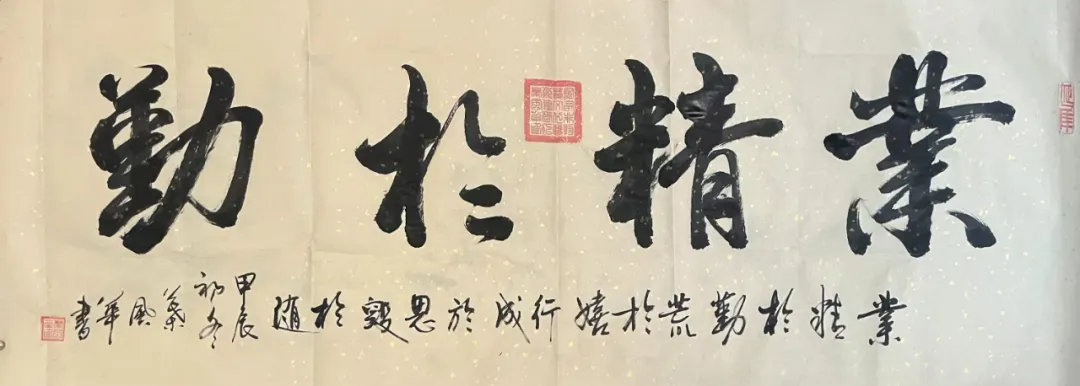 業精於勤
業精於勤荒於嬉行成於思毀於随
甲辰
初冬
葉風華書